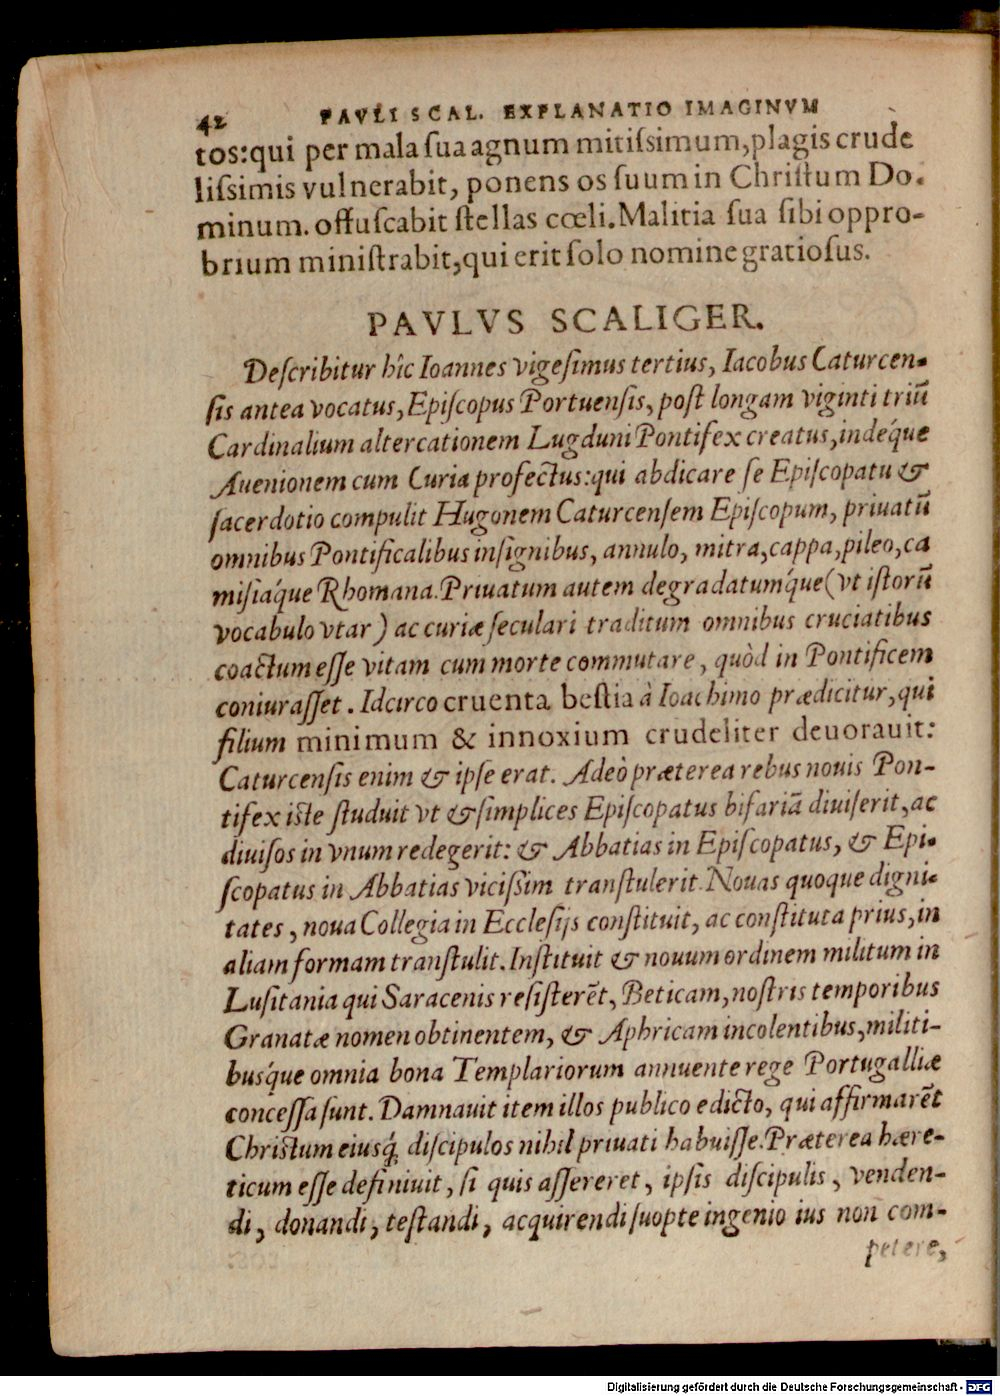 42 PAVLI SCAL. EXPLANATIO IMAGINVM
tos:qui per mala ſua agnum mitiſsimum,plagis crude
liſsimis vulnerabit, ponens os ſuum in Chriſtum Do-
minum. offuſcabit ſtellas cœli. Malitia ſua ſibi oppro-
brium miniſtrabit,qui erit ſolo nomine gratioſus.
PAVLVS SCALIGER.
Deſcribitur hîc Ioannes vigeſimus tertius, Iacobus Caturcen-
ſis antea vocatus, Epiſcopus Portuenſis, poſt longam viginti triũ
Cardinalium altercationem Lugduni Pontifex creatus, indéque
Auenionem cum Curia profectus: qui abdicare ſe Epiſcopatu &
ſacerdotio compulit Hugonem Caturcenſem Epiſcopum, priuatũ
omnibus Pontificalibus inſignibus, annulo, mitra, cappa, pileo, ca
miſiáque Rhomana. Priuatum autem degradatumque (vt iſtorũ
vocabulo vtar) ac curiæ ſeculari traditum omnibus cruciatibus
coactum eſſe vitam cum morte commutare, quòd in Pontificem
coniuraſſet. Idcirco cruenta beſtia à Ioachimo prædicitur, qui
filium minimum & innoxium crudeliter deuorauit:
Caturcenſis enim & ipſe erat. Adeò præterea rebus nouis Pon-
tifex iſte ſtuduit vt & ſimplices Epiſcopatus bifariã diuiſerit, ac
diuiſos in vnum redegerit: & Abbatias in Epiſcopatus, & Epi-
ſcopatus in Abbatias viciſsim tranſtulerit. Nouas quoque digni-
tates, noua Collegia in Eccleſijs conſtituit, ac conſtituta prius, in
aliam formam tranſtulit. Inſtituit & nouum ordinem militum in
Luſitania qui Saracenis reſiſterẽt, Beticam, noſtris temporibus
Granatæ nomen obtinentem, & Aphricam incolentibus, militi-
buśque omnia bona Templariorum annuente rege Portugalliæ
conceſſa ſunt. Damnauit item illos publico edicto, qui affirmarẽt
Chriſtum eiusq́; diſcipulos nihil priuati habuiſſe. Præterea hære-
ticum eſſe definiuit, ſi quis aſſereret, ipſis diſcipulis, venden-
di, donandi, teſtandi, acquirendi ſuopte ingenio ius non com-
petere,
Digitalisierung gefördert durch die Deutsche Forschungsgemeinschaft - DFG